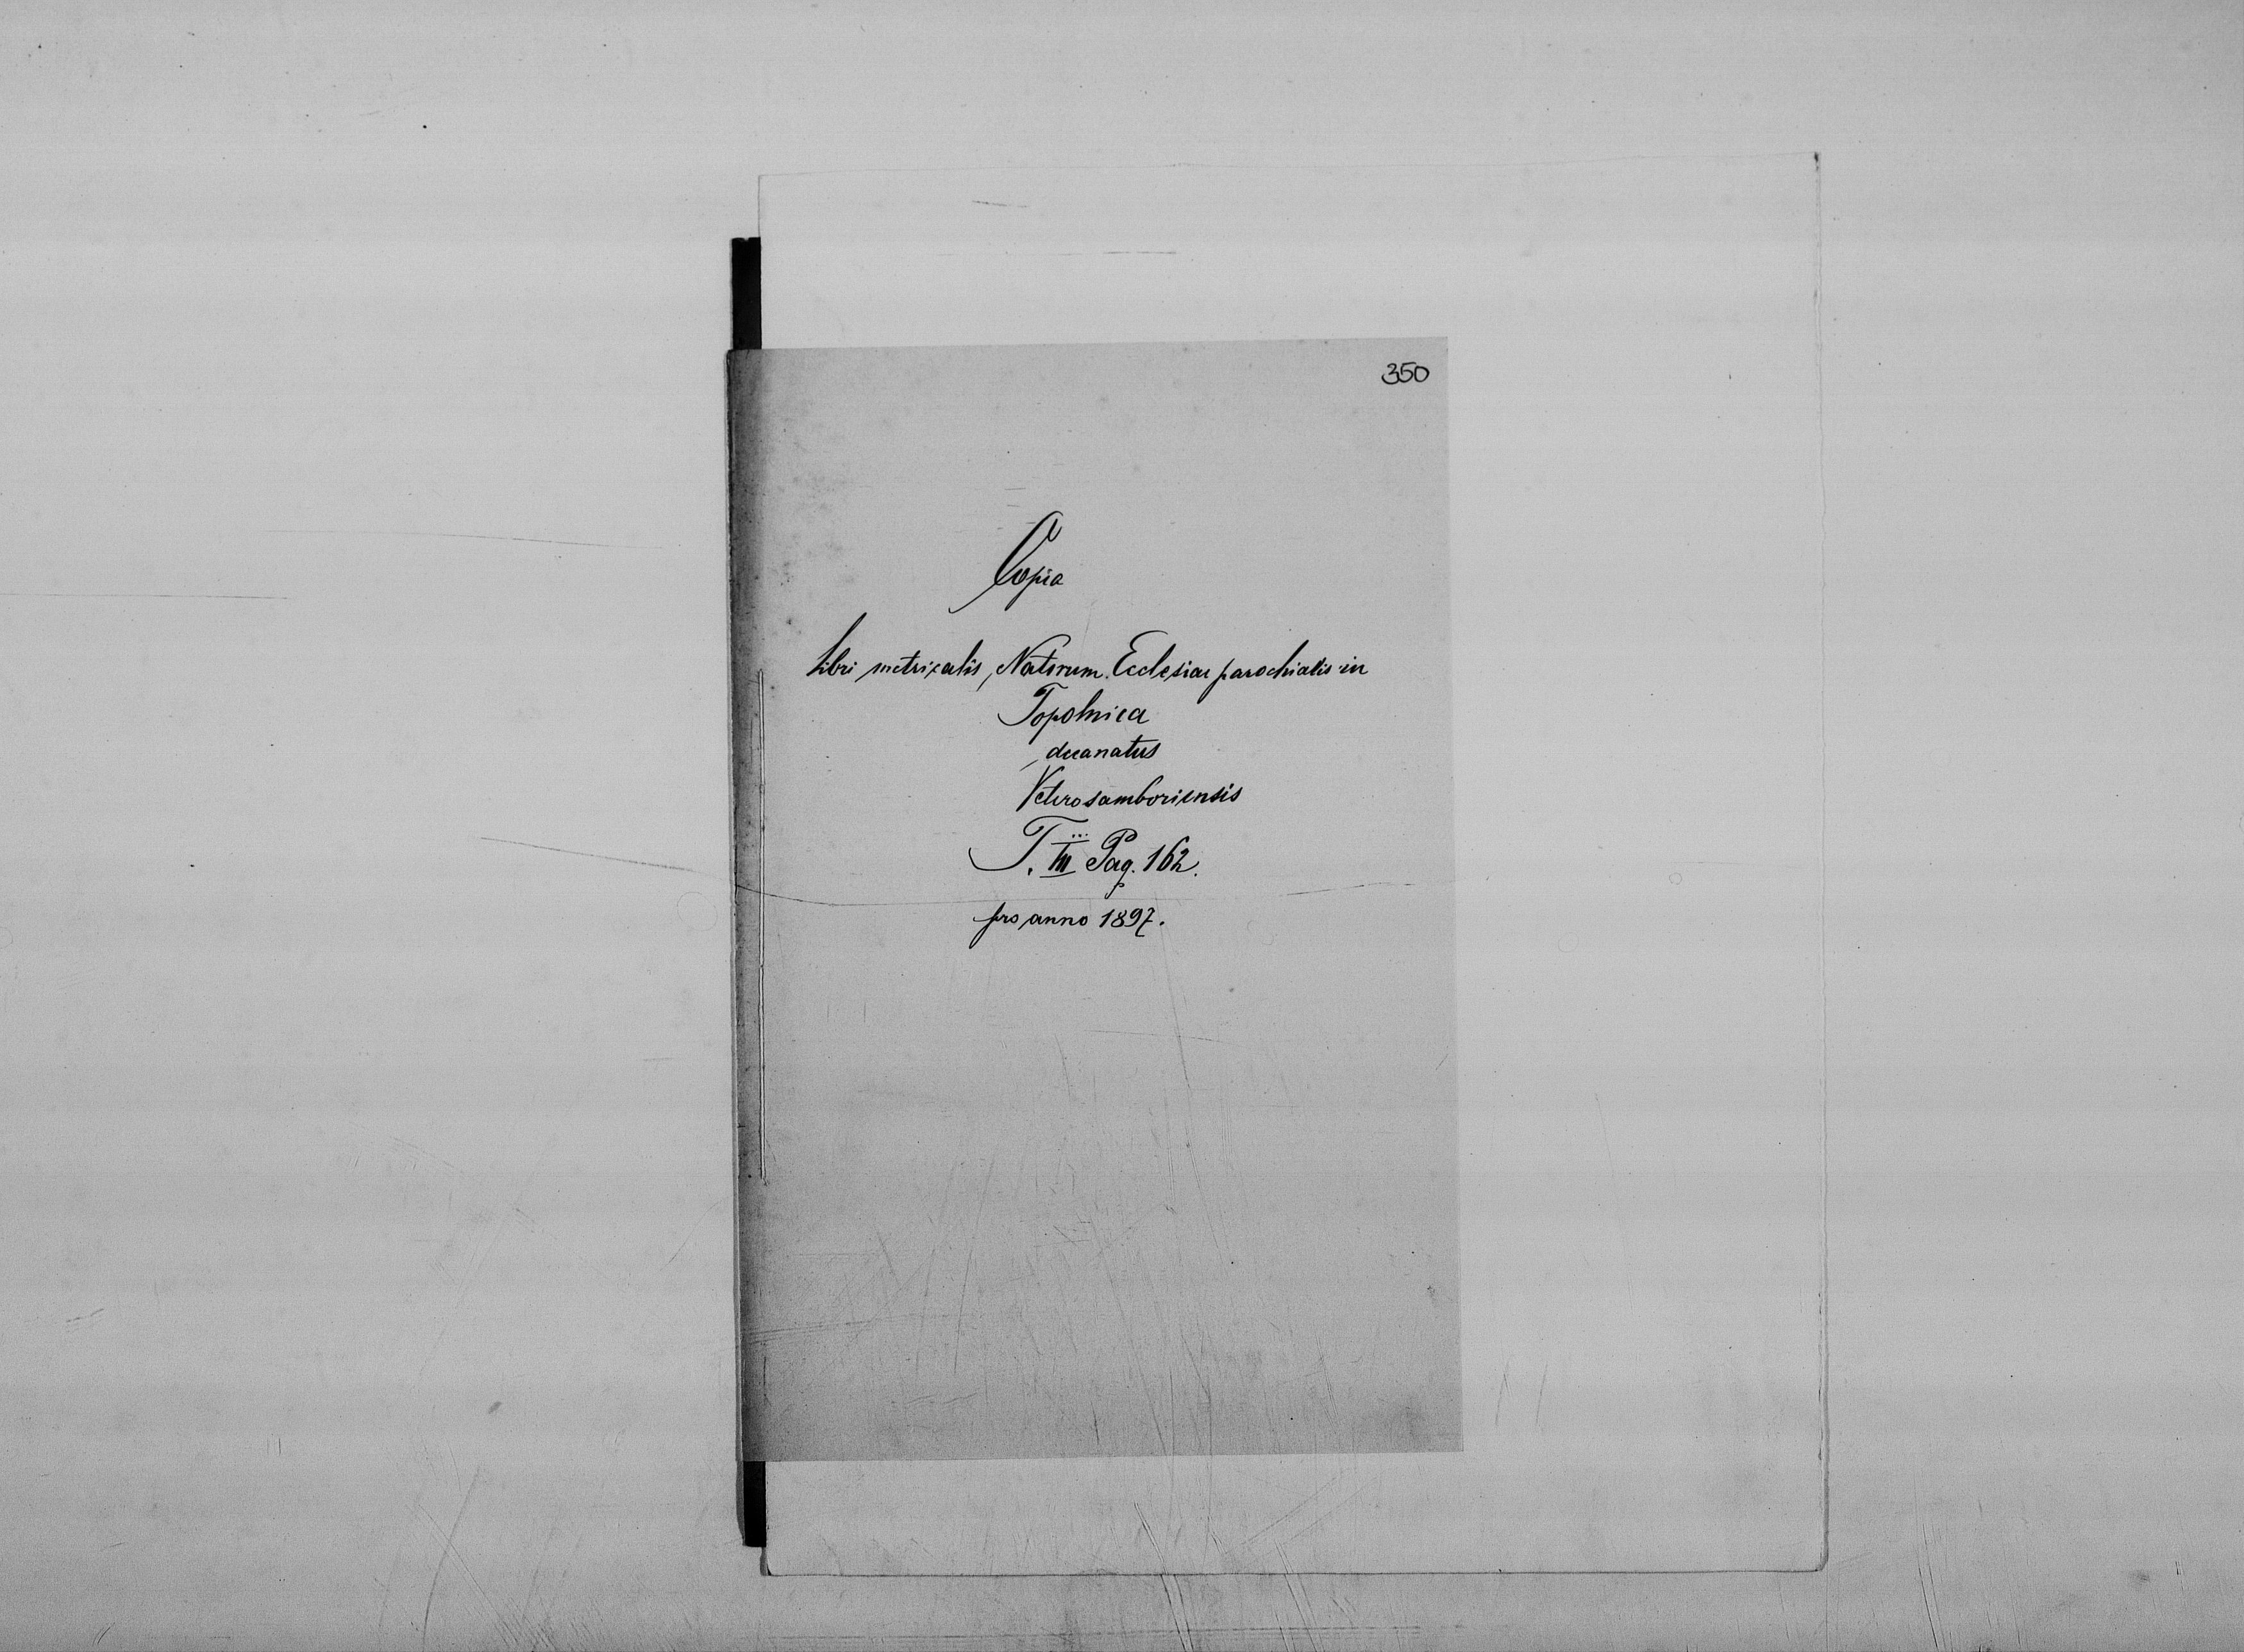 350
Copia
Libri metricalis, Natorum Ecclesiae parochialis in
Topolnica
decanatus
Veterosamboriensis
T. III Pag. 162.
pro anno 1897.